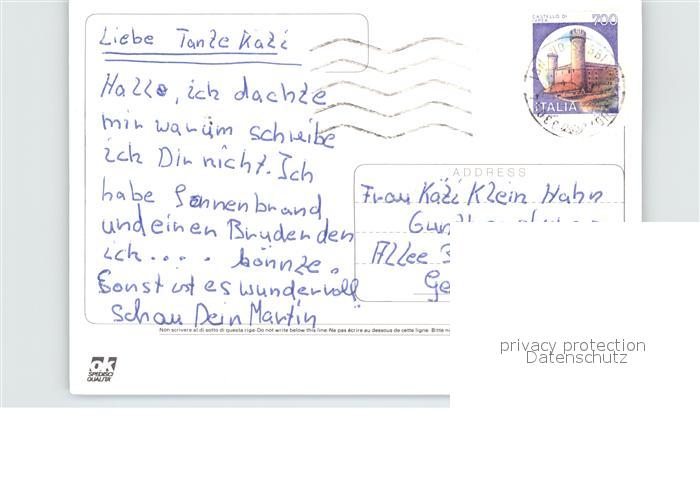 Liebe Tante Käti
Hallo, ich dachte
mir warum schreibe
ich Dir nicht. Ich
habe Sonnenbrand
und einen Bruder den
ich.... könnte.
Sonst ist es wundervoll
Schau Dein Martin
CASTELLO DI
IVREA
700
ITALIA
ADDRESS
Frau Käti Klein Hahn
Allee
Non scrivere al di sotto di questa riga - Do not write below this line - Ne pas écrire au dessous de cette ligne - Bitte
ok
SPEDISCI
QUALITA'
privacy protection
Datenschutz